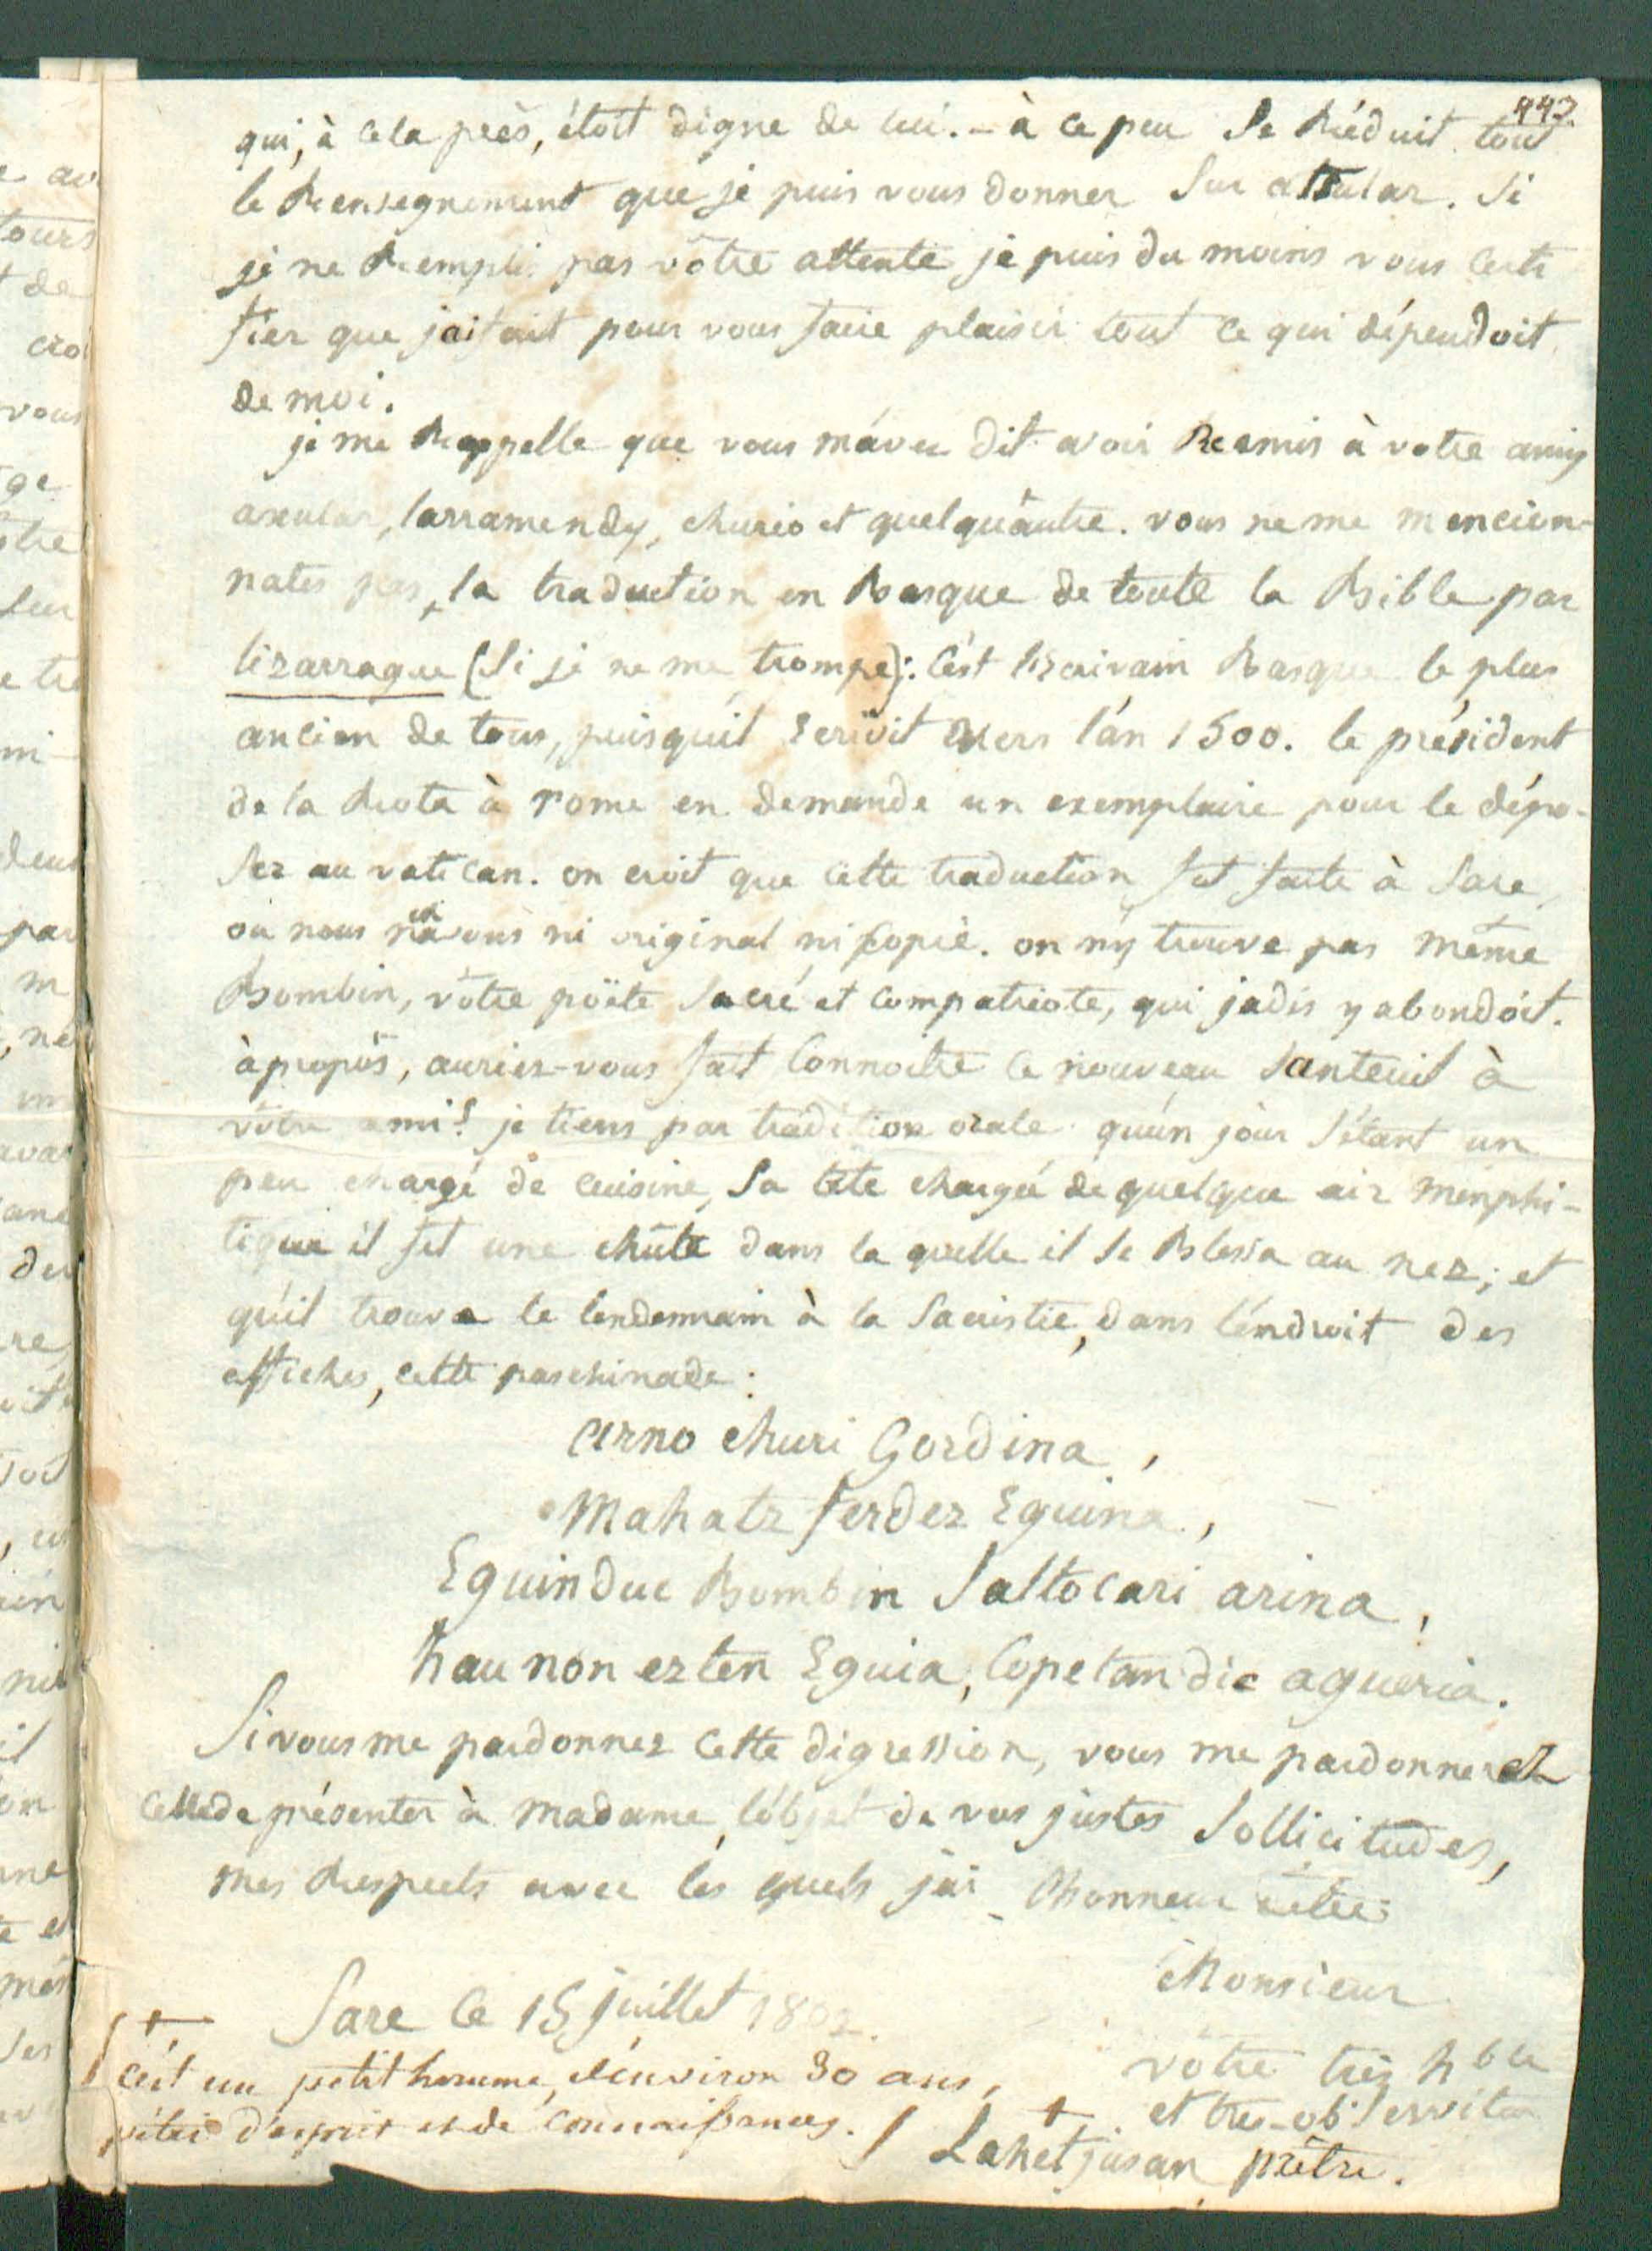 442
qui, à cela près, étoit digne de lui. - à ce peu se réduit tout
le Renseignement que je puis vous donner sur atsular. Si
je ne Rempli pas vôtre attente je puis du moins vous certi
fier que j'ai fait pour vous faire plaisir tout ce qui dépendoit
de moi.
je me Rappelle que vous m'avez dit avoir Remis à votre amy
axular, larramendy, churio et quelqu'autre. vous ne me mencion-
nates pas, la traduction en Basque de toute la Bible par
lizarrague (Si je ne me trompe): c'est l'Ecrivain Basque le plus
ancien de tous, puisqu'il Ecrivoit vers l'an 1500. le président
de la Rota à rome en demande un exemplaire pour le dépo-
ser au vatican. on croit que cette traduction fut faite à Sare,
où nous n'en avons ni original ni copie. on n'y trouve pas même
Bombin, vôtre poëte sacré et compatriote, qui jadis y abondoit.
à propos, auriez-vous fait connoitre ce nouveau Santeuil à
vôtre ami? je tiens par tradition orale qu'un jour s'étant un
peu chargé de cuisine, sa tête chargée de quelque air menphi-
tique il fit une chûte dans la quelle il se Blessa au nez; et
qu'il trouva le lendemain à la Sacristie, dans l'endroit des
affiches, cette paschinade:
arno churi Gordina,
Mahatz ferdez Eguina,
Eguin duc Bombin Saltocari arina,
hau non ezten Eguia, Copetan dic agueria.
Si vous me pardonnez cette digression, vous me pardonnerez
celle de présenter à madame, l'objet de vos justes Sollicitudes,
mes Respects avec les quels j'ai l'honneur d'etre
Monsieur
Sare le 15 juillet 1802.
vôtre très hble
et tres-ob. Serviteur
+ Lahetjusan prêtre.
+ c'est un petit homme, d'environ 30 ans,
pétri d'esprit et de connaissances.